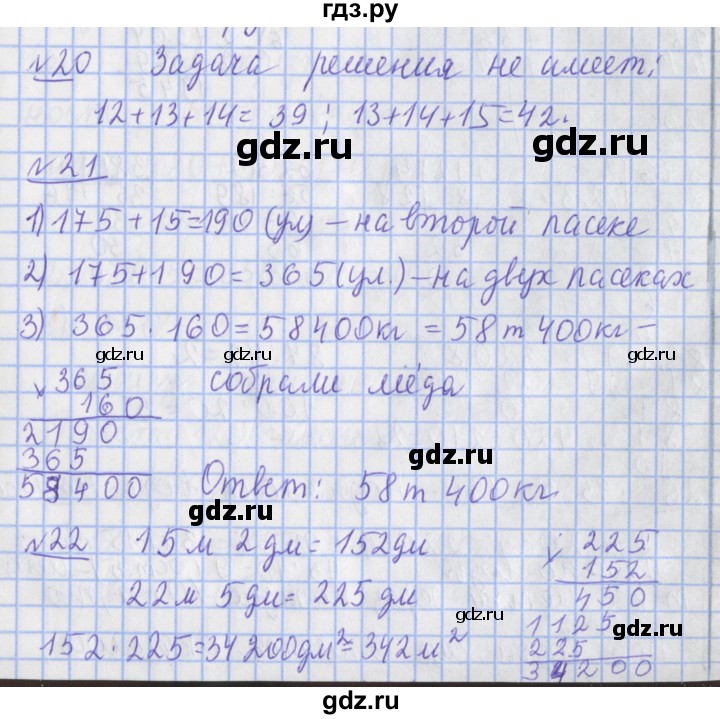 гдз.ру
№20 Задача решения не имеет;
12+13+14=39; 13+14+15=42.
gdz.ru gdz.ru
№21
1) 175+15=190 (ул) – на второй пасеке
2) 175+190=365 (ул.) – на двух пасеках
3) 365·160=58400кг =58т 400кг –
gdz.ru gdz.ru gdz.ru
собрали мёда
× 365
160
2190
365
58400
gdz.ru gdz.ru
Ответ: 58т 400кг
№22 15м 2дм=152дм
22м 5дм=225дм
gdz.ru gdz.ru gdz.ru
152·225=34200дм²=342м²
× 225
152
450
1125
225
34200
gdz.ru gdz.ru
gdz.ru